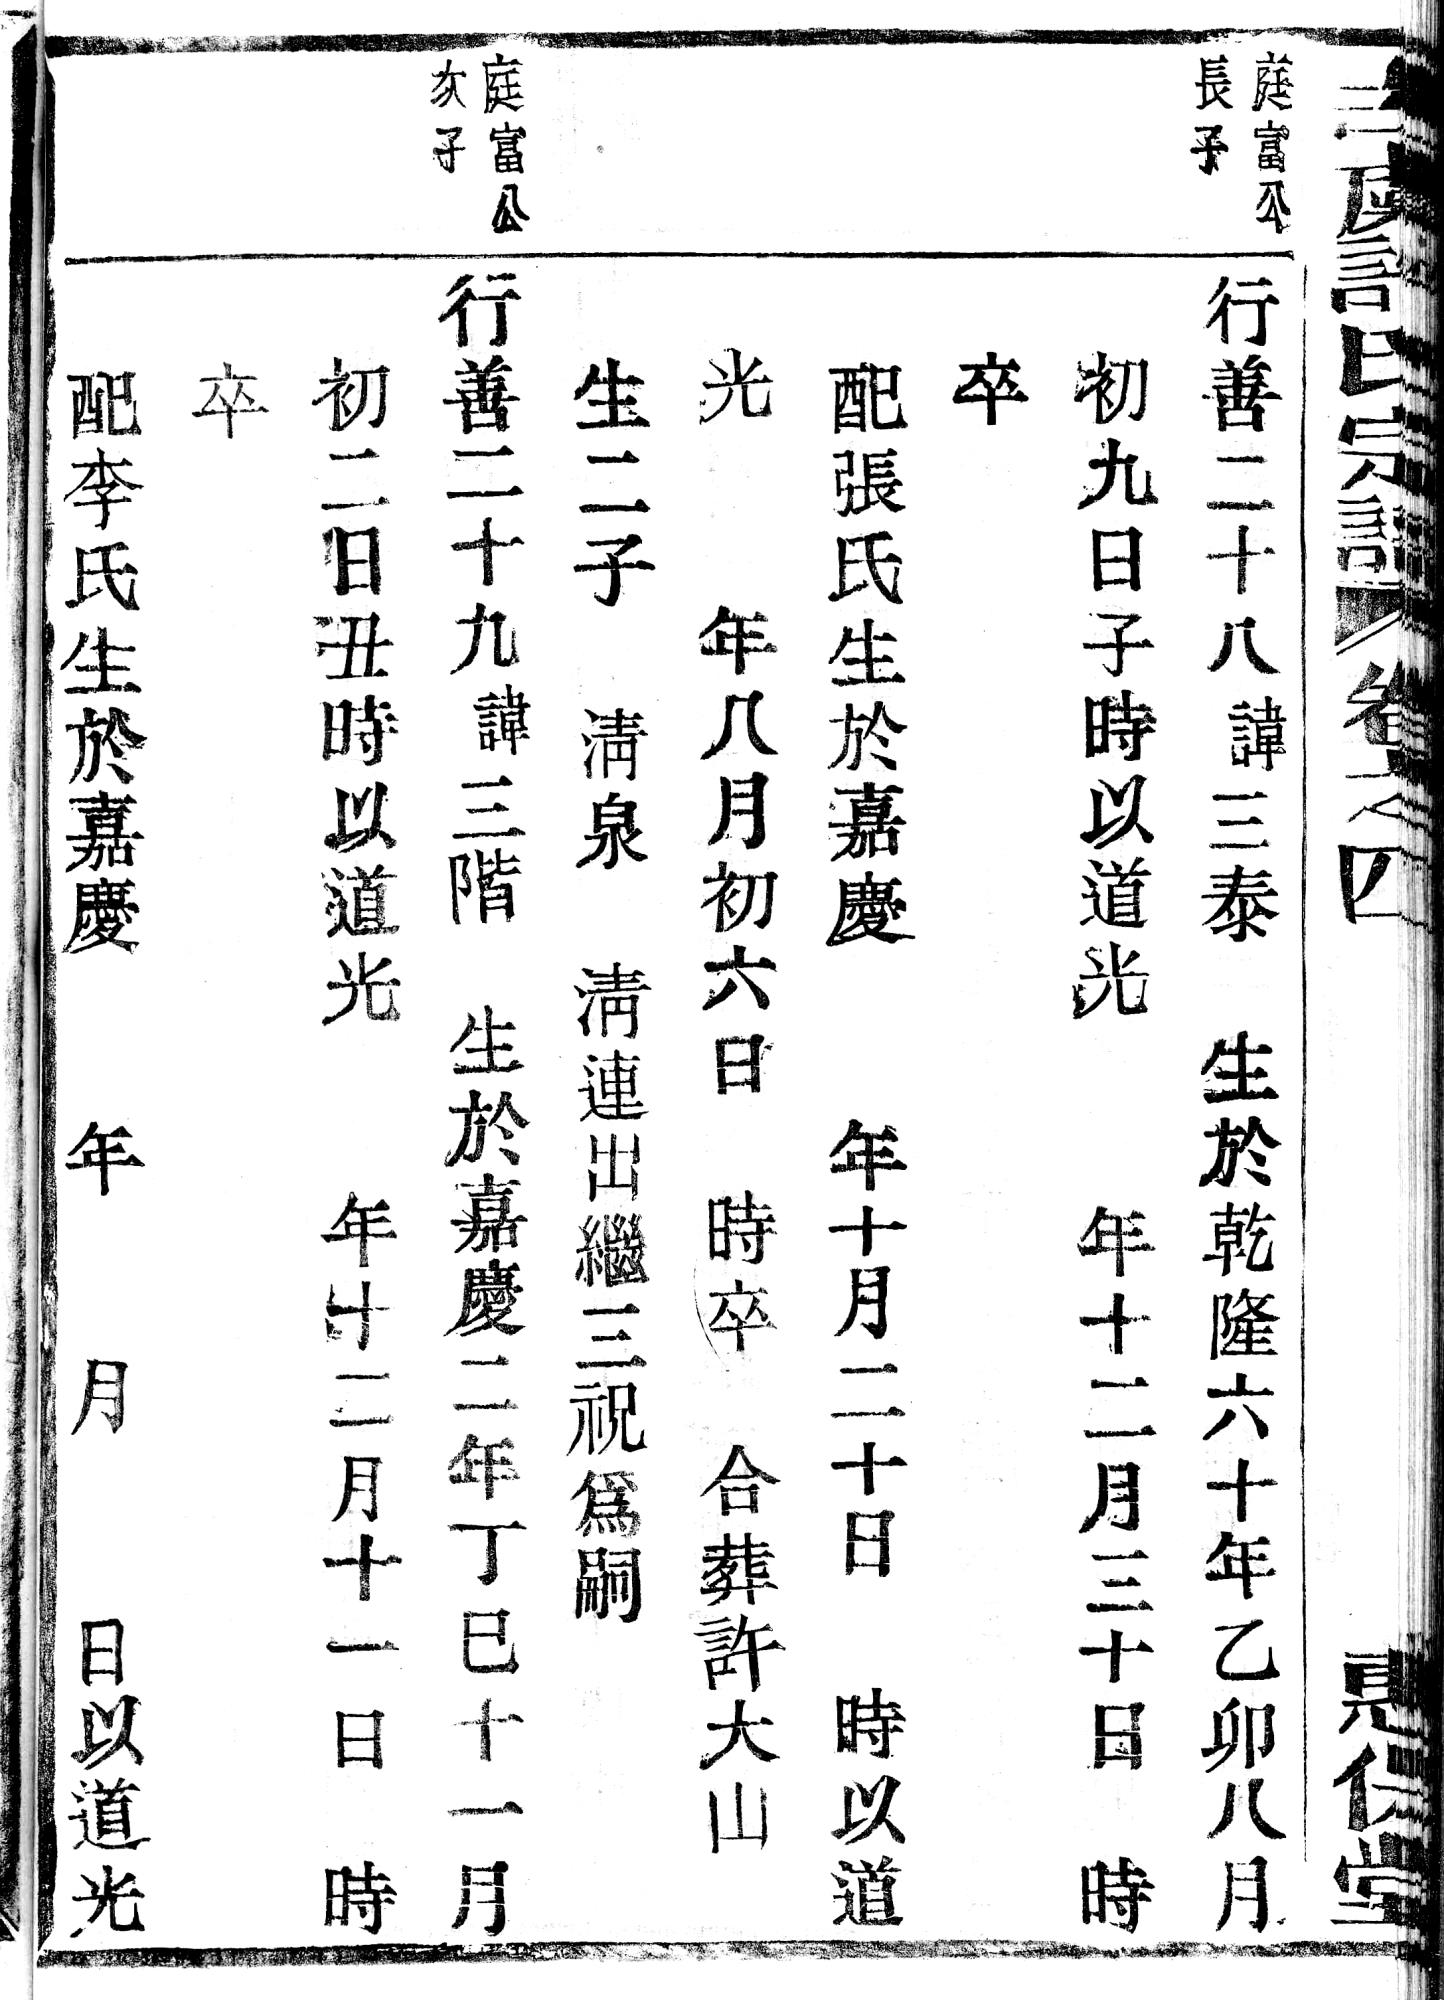 許氏宗譜 卷之四
庭富公
長子
行善二十八 諱三泰 生於乾隆六十年乙卯八月
初九日子時以道光 年十二月三十日 時
卒
配張氏生於嘉慶 年十月二十日 時以道
光 年八月初六日 時卒 合葬許大山
生二子 淸泉 淸連出繼三祝爲嗣
庭富公
次子
行善二十九 諱三階 生於嘉慶二年丁巳十一月
初二日丑時以道光 年十二月十一日 時
卒
配李氏生於嘉慶 年 月 日以道光